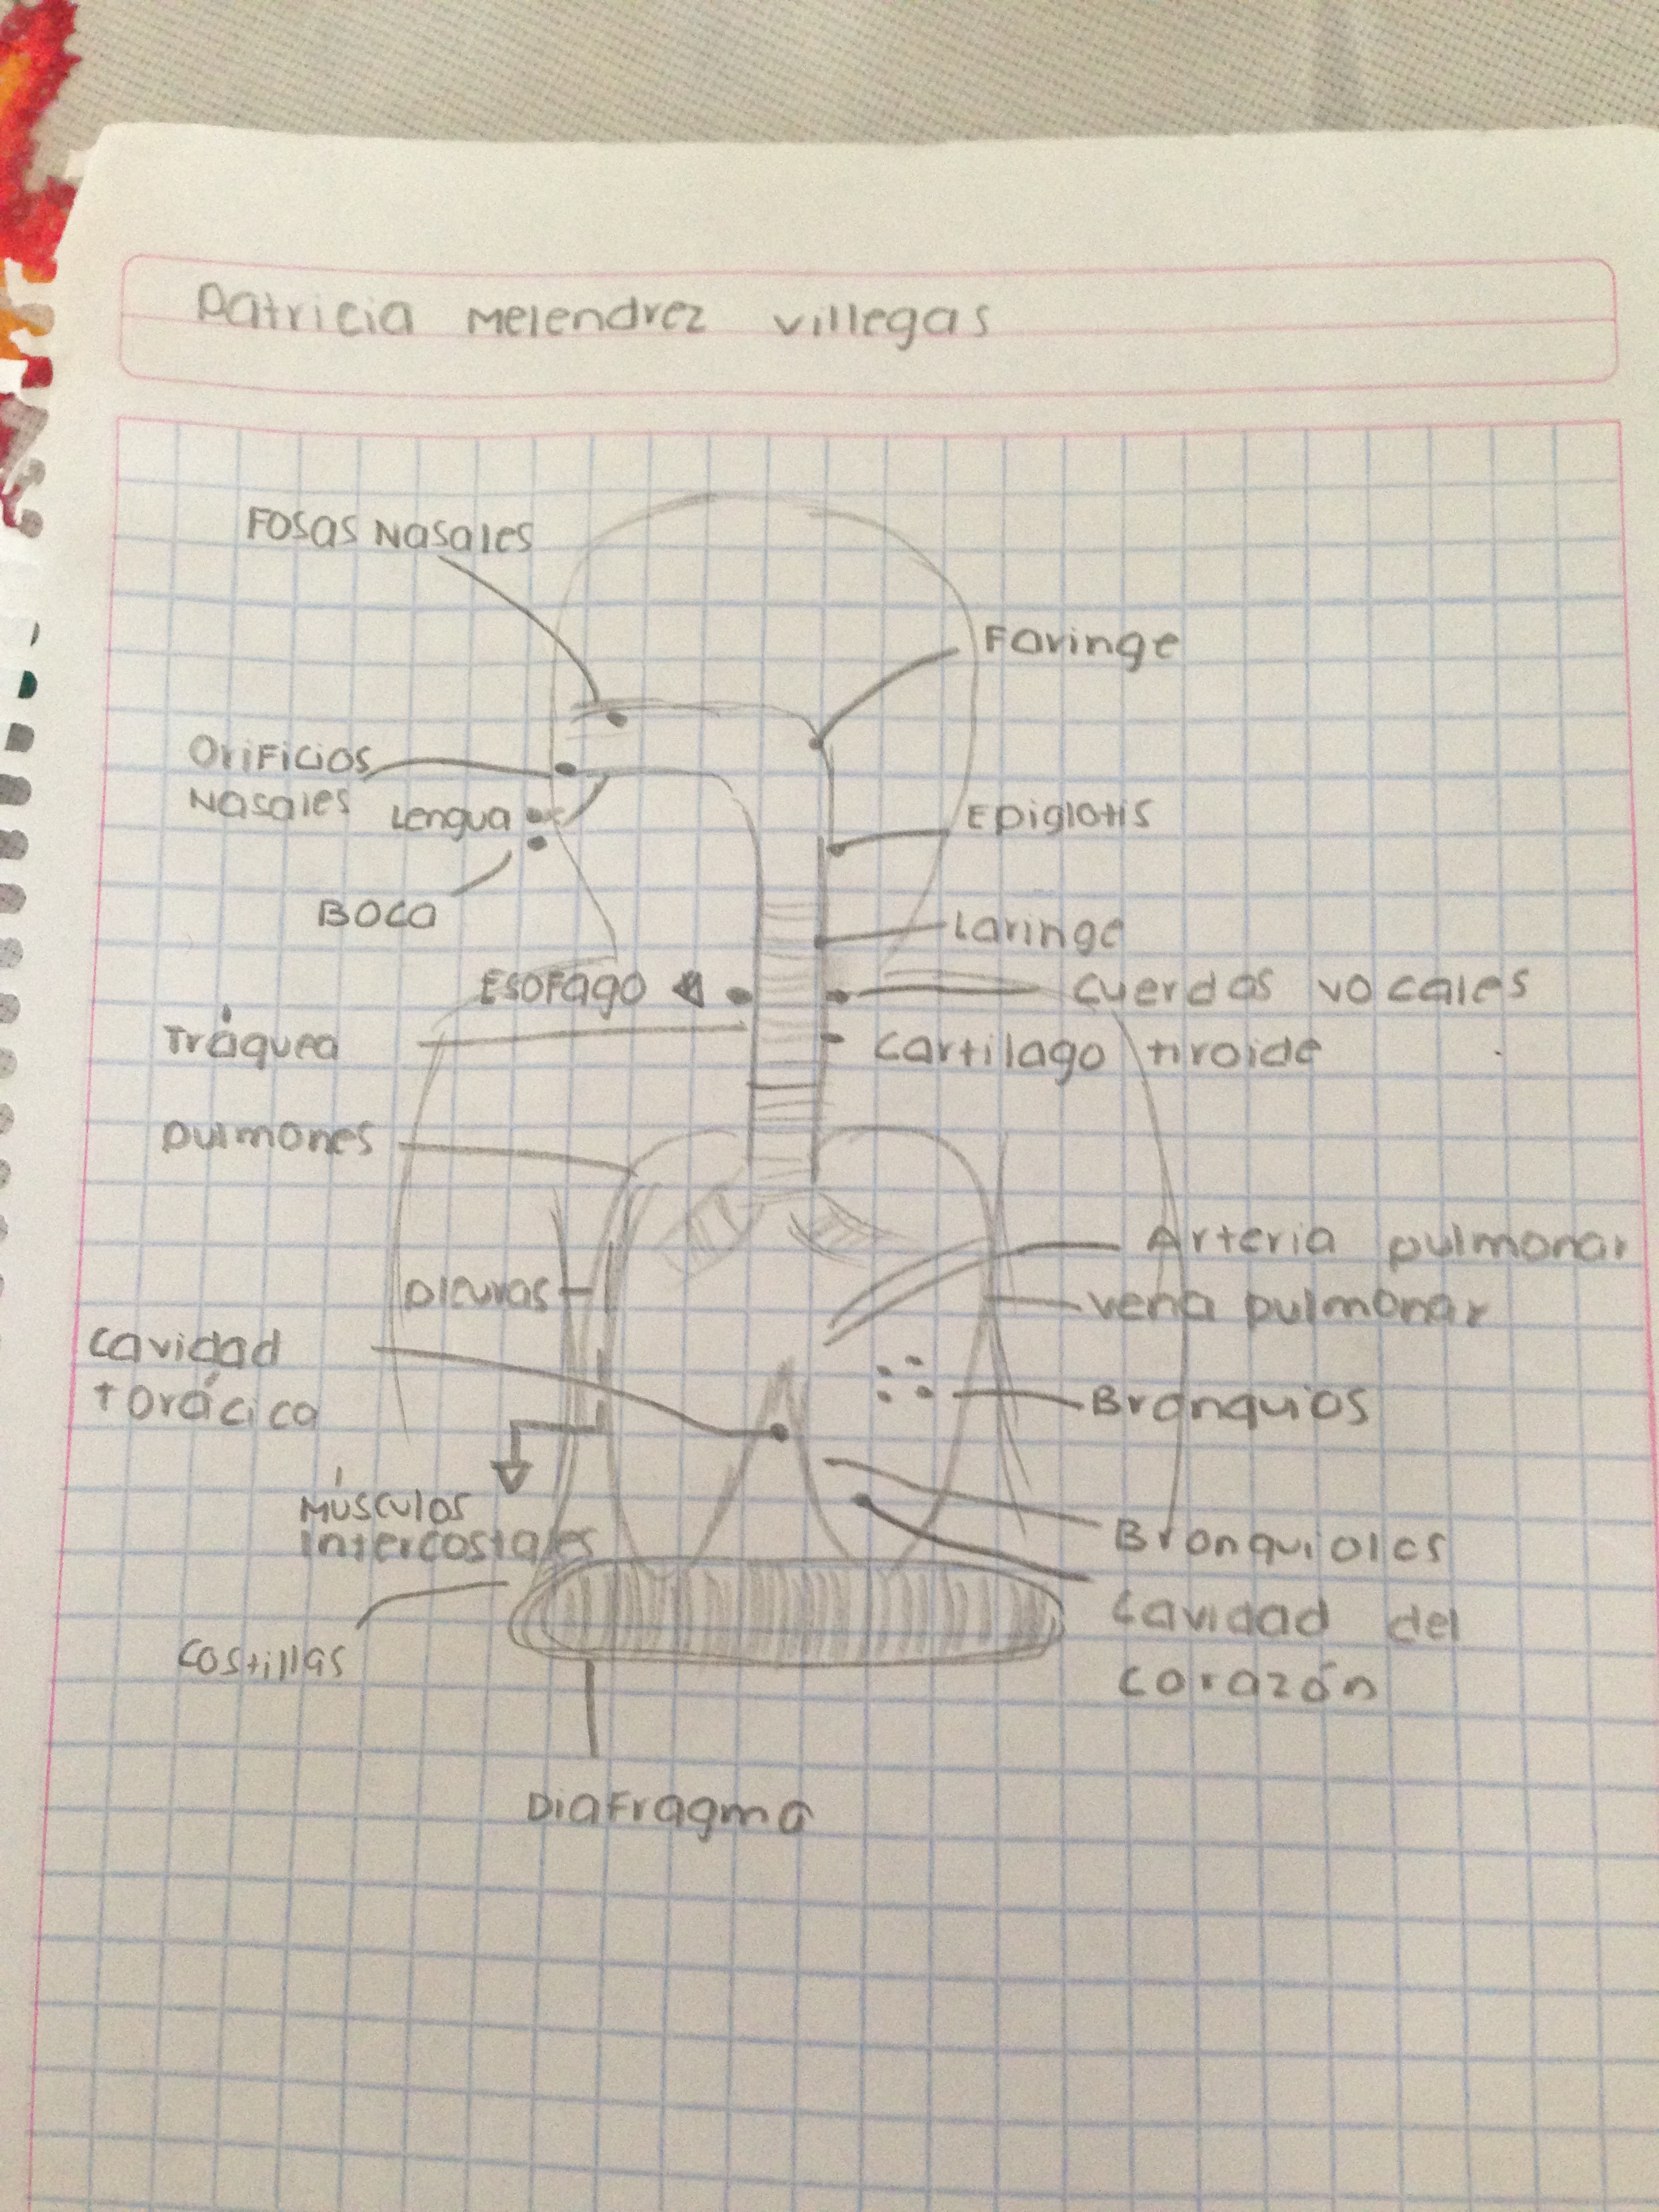 Patricia Melendrez Villegas
Fosas Nasales
Faringe
Orificios
Nasales
Lengua
Epiglotis
Boca
Laringe
Esofago
cuerdas vocales
Tráquea
cartilago tiroide
pulmones
Arteria pulmonar
pleuras
vena pulmonar
cavidad
torácica
Bronquios
Músculos
intercostales
Bronquiolos
cavidad del
corazón
costillas
Diafragma